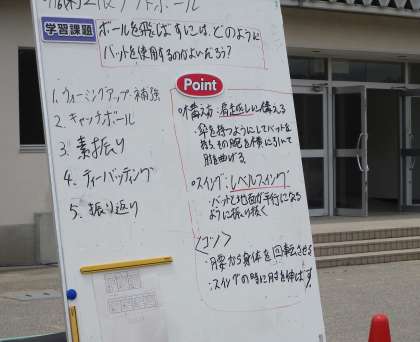 学習課題
ボールを飛ばすには、どのように
バットを使用するのがよいだろう?
1. ウォーミングアップ・補強
2. キャッチボール
3. 素振り
4. ティーバッティング
5. 振り返り
Point
○構え方・肩越しに構える
・傘を持つようにしてバットを
持ち、その腕を横に引いて
肘を曲げる
○スイング・レベルスイング
・バットと地面が平行になる
ように振り抜く
<コツ>
・腰から身体を回転させる
・スイングの時に肘を伸ばす